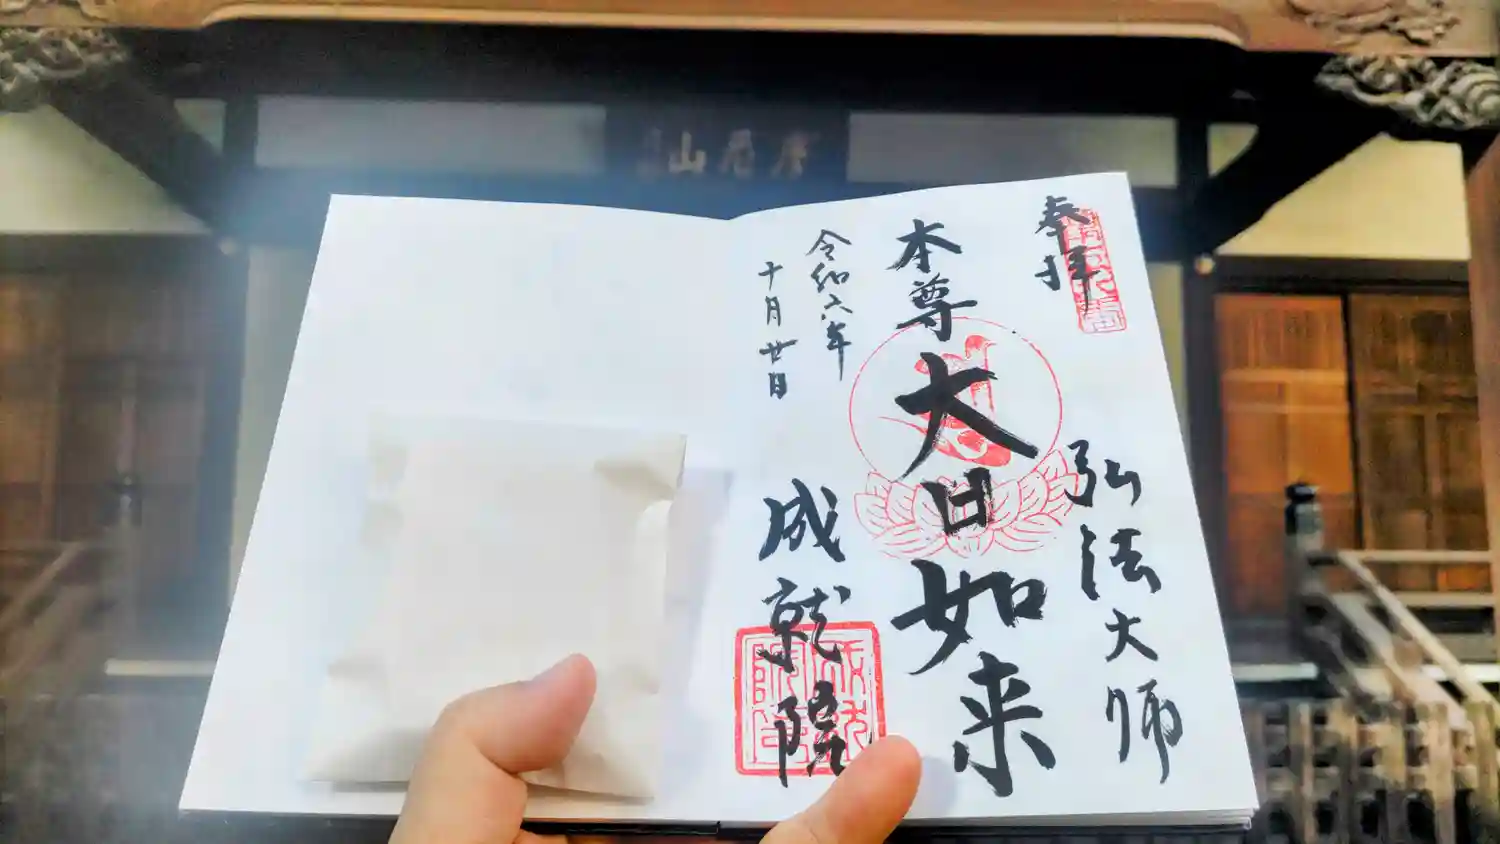 奉拝
弘法大師
本尊 大日如来
令和六年
十月廿日
成就院